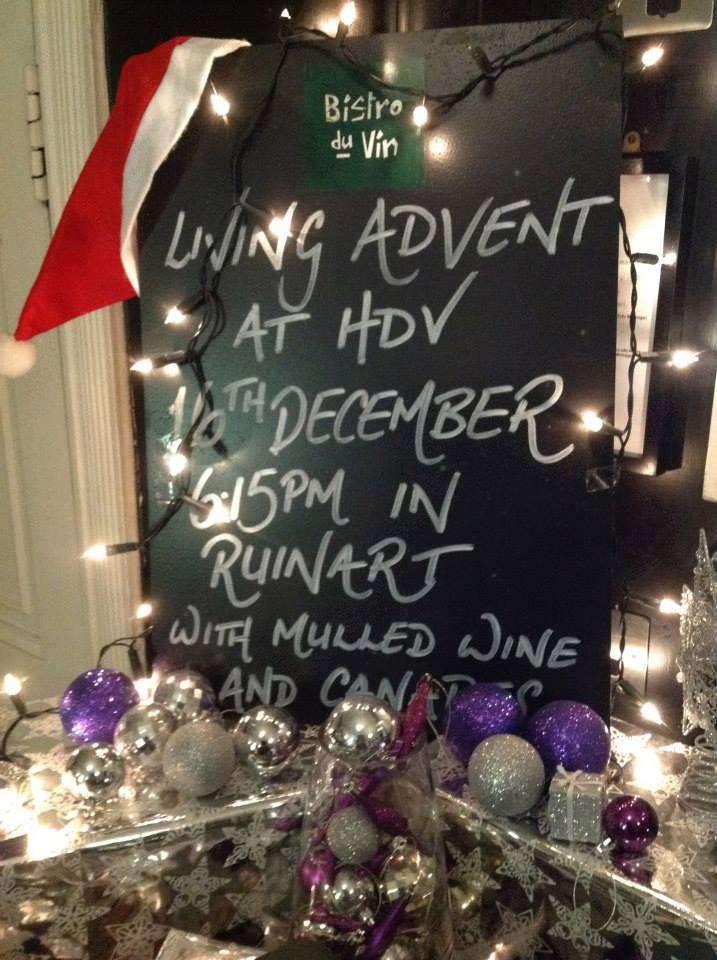 Bistro
du Vin
LIVING ADVENT
AT HDV
16TH DECEMBER
6:15PM IN
RUINART
WITH MULLED WINE
AND CANAPES